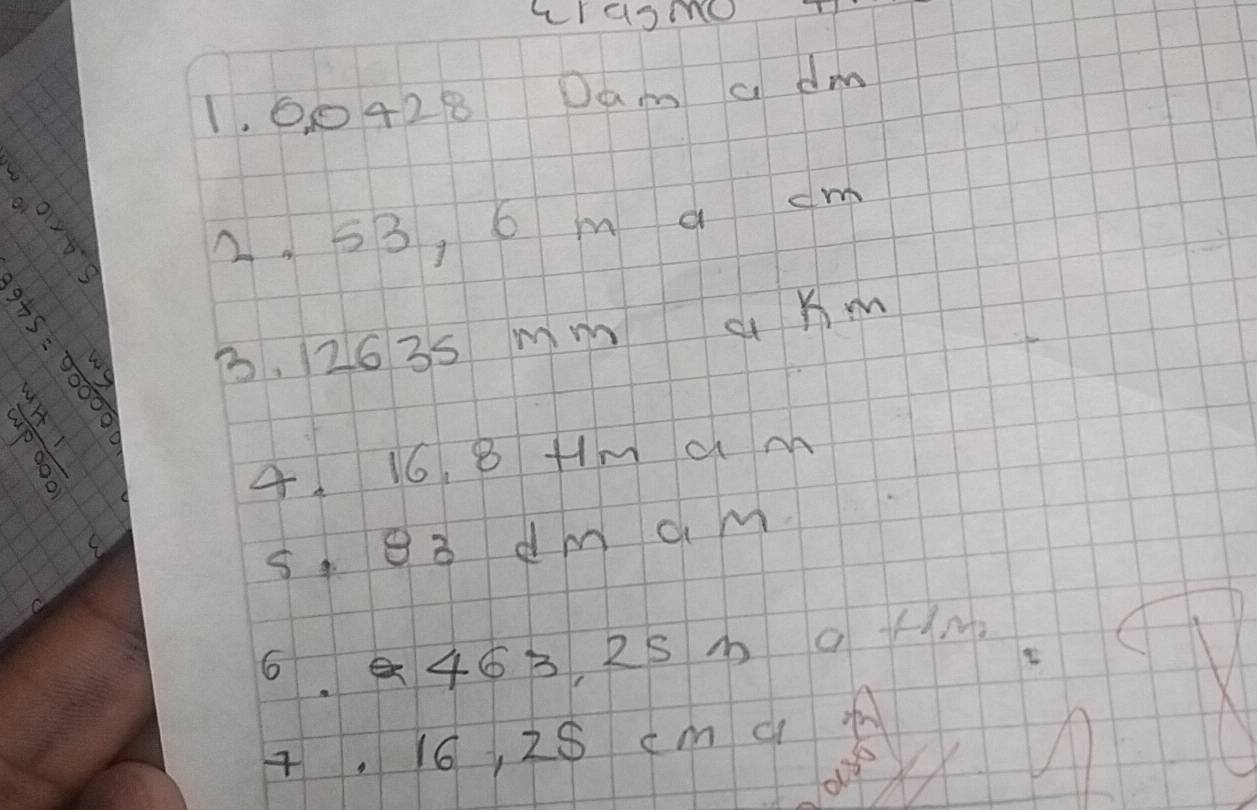 Erasmo
1. 0,0428 Dam a dm
2. 53, 6 m a cm
3. 12635 mm a Km
4. 16,8 Hm a m
5. 93 dm a m
6. 463,25 m a Hm
7. 16,25 cm a m